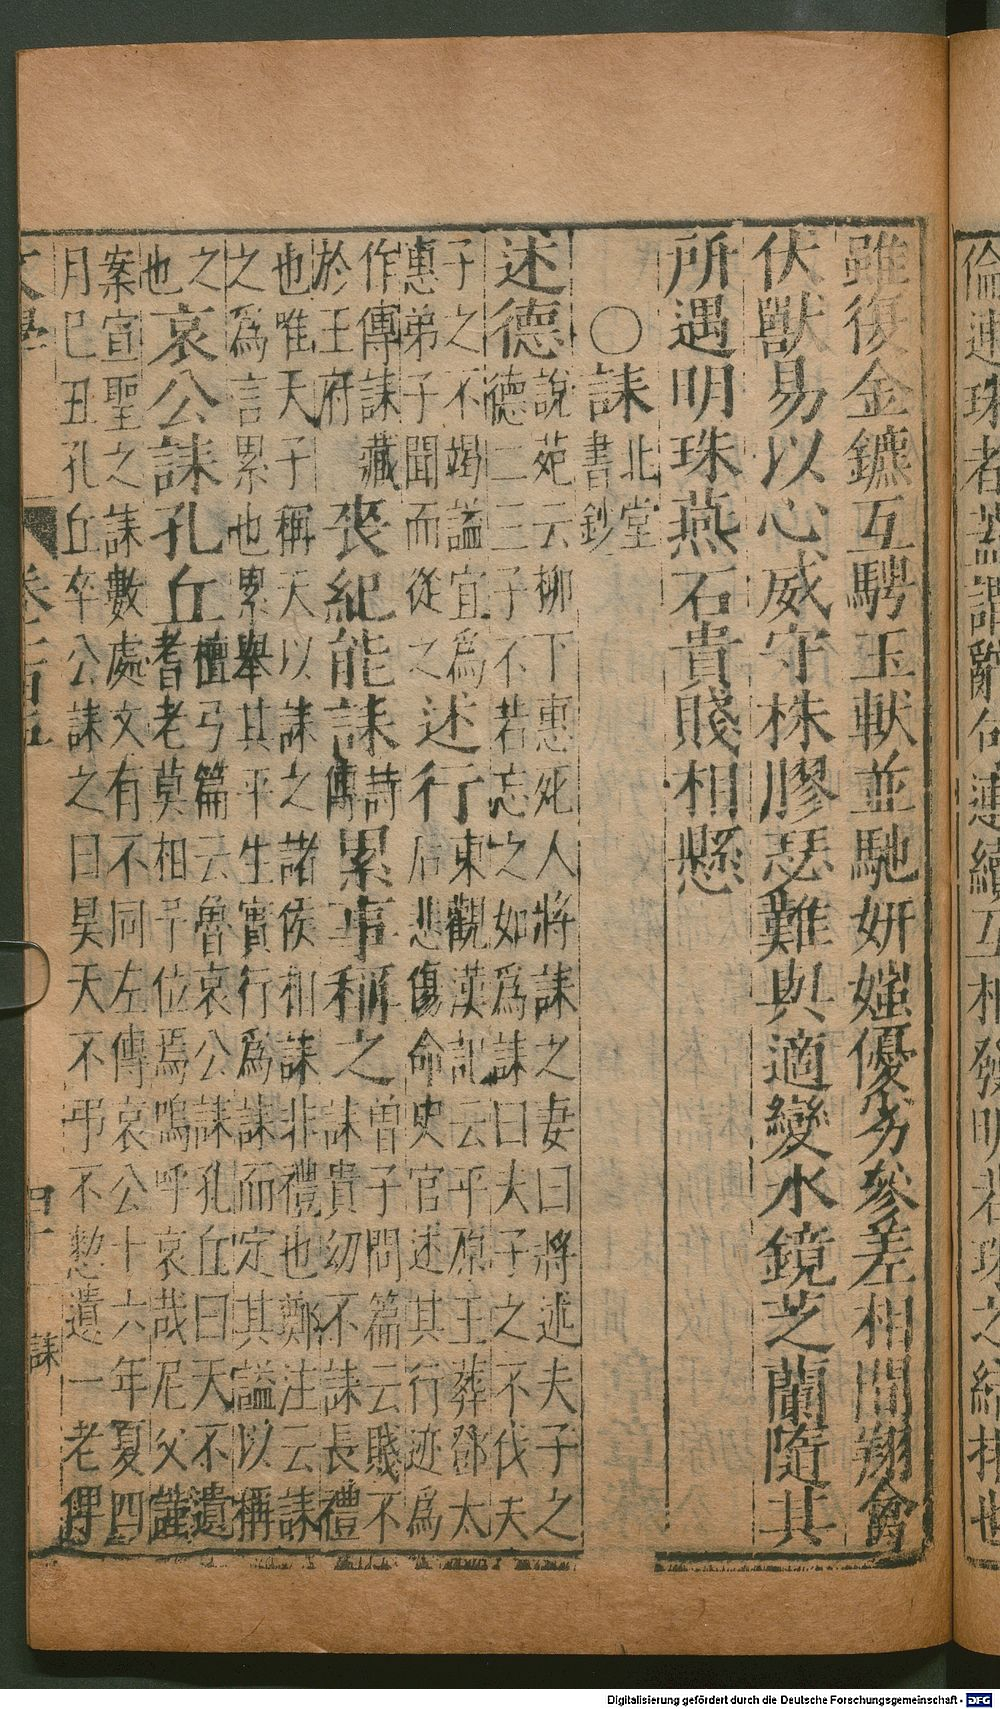 倫連珠者蓋謂辭句連續互相發明若珠之結排也
雖復金鑣互騁玉軑並馳妍媸優劣參差相間翔禽
伏獸易以心威守株膠瑟難與適變水鏡芝蘭隨其
所遇明珠燕石貴賤相懸
○誄北堂
書鈔
述德說苑云柳下惠死人將誄之妻曰將述夫子之
德二三子不若忘之如為誄曰夫子之不伐夫
子之不竭謚宜為
惠弟子聞而從之
述行東觀漢記云平原王葬鄧太
后悲傷命史官述其行迹為
作傳誄藏
於王府
喪紀能誄詩
傳
累事稱之曾子問篇云賤不
誄貴幼不誄長禮
也唯天子稱天以誄之諸侯相誄非禮也鄭注云誄
之為言累也累舉其平生實行為誄而定其謚以稱
之
也
哀公誄孔丘檀弓篇云魯哀公誄孔丘曰天不遺
耆老莫相予位焉嗚呼哀哉尼父謹
案宣聖之誄數處文有不同左傳哀公十六年夏四
月巳丑孔丘卒公誄之曰昊天不弔不憖遺一老俾
文學
卷
誄
Digitalisierung gefördert durch die Deutsche Forschungsgemeinschaft - DFG